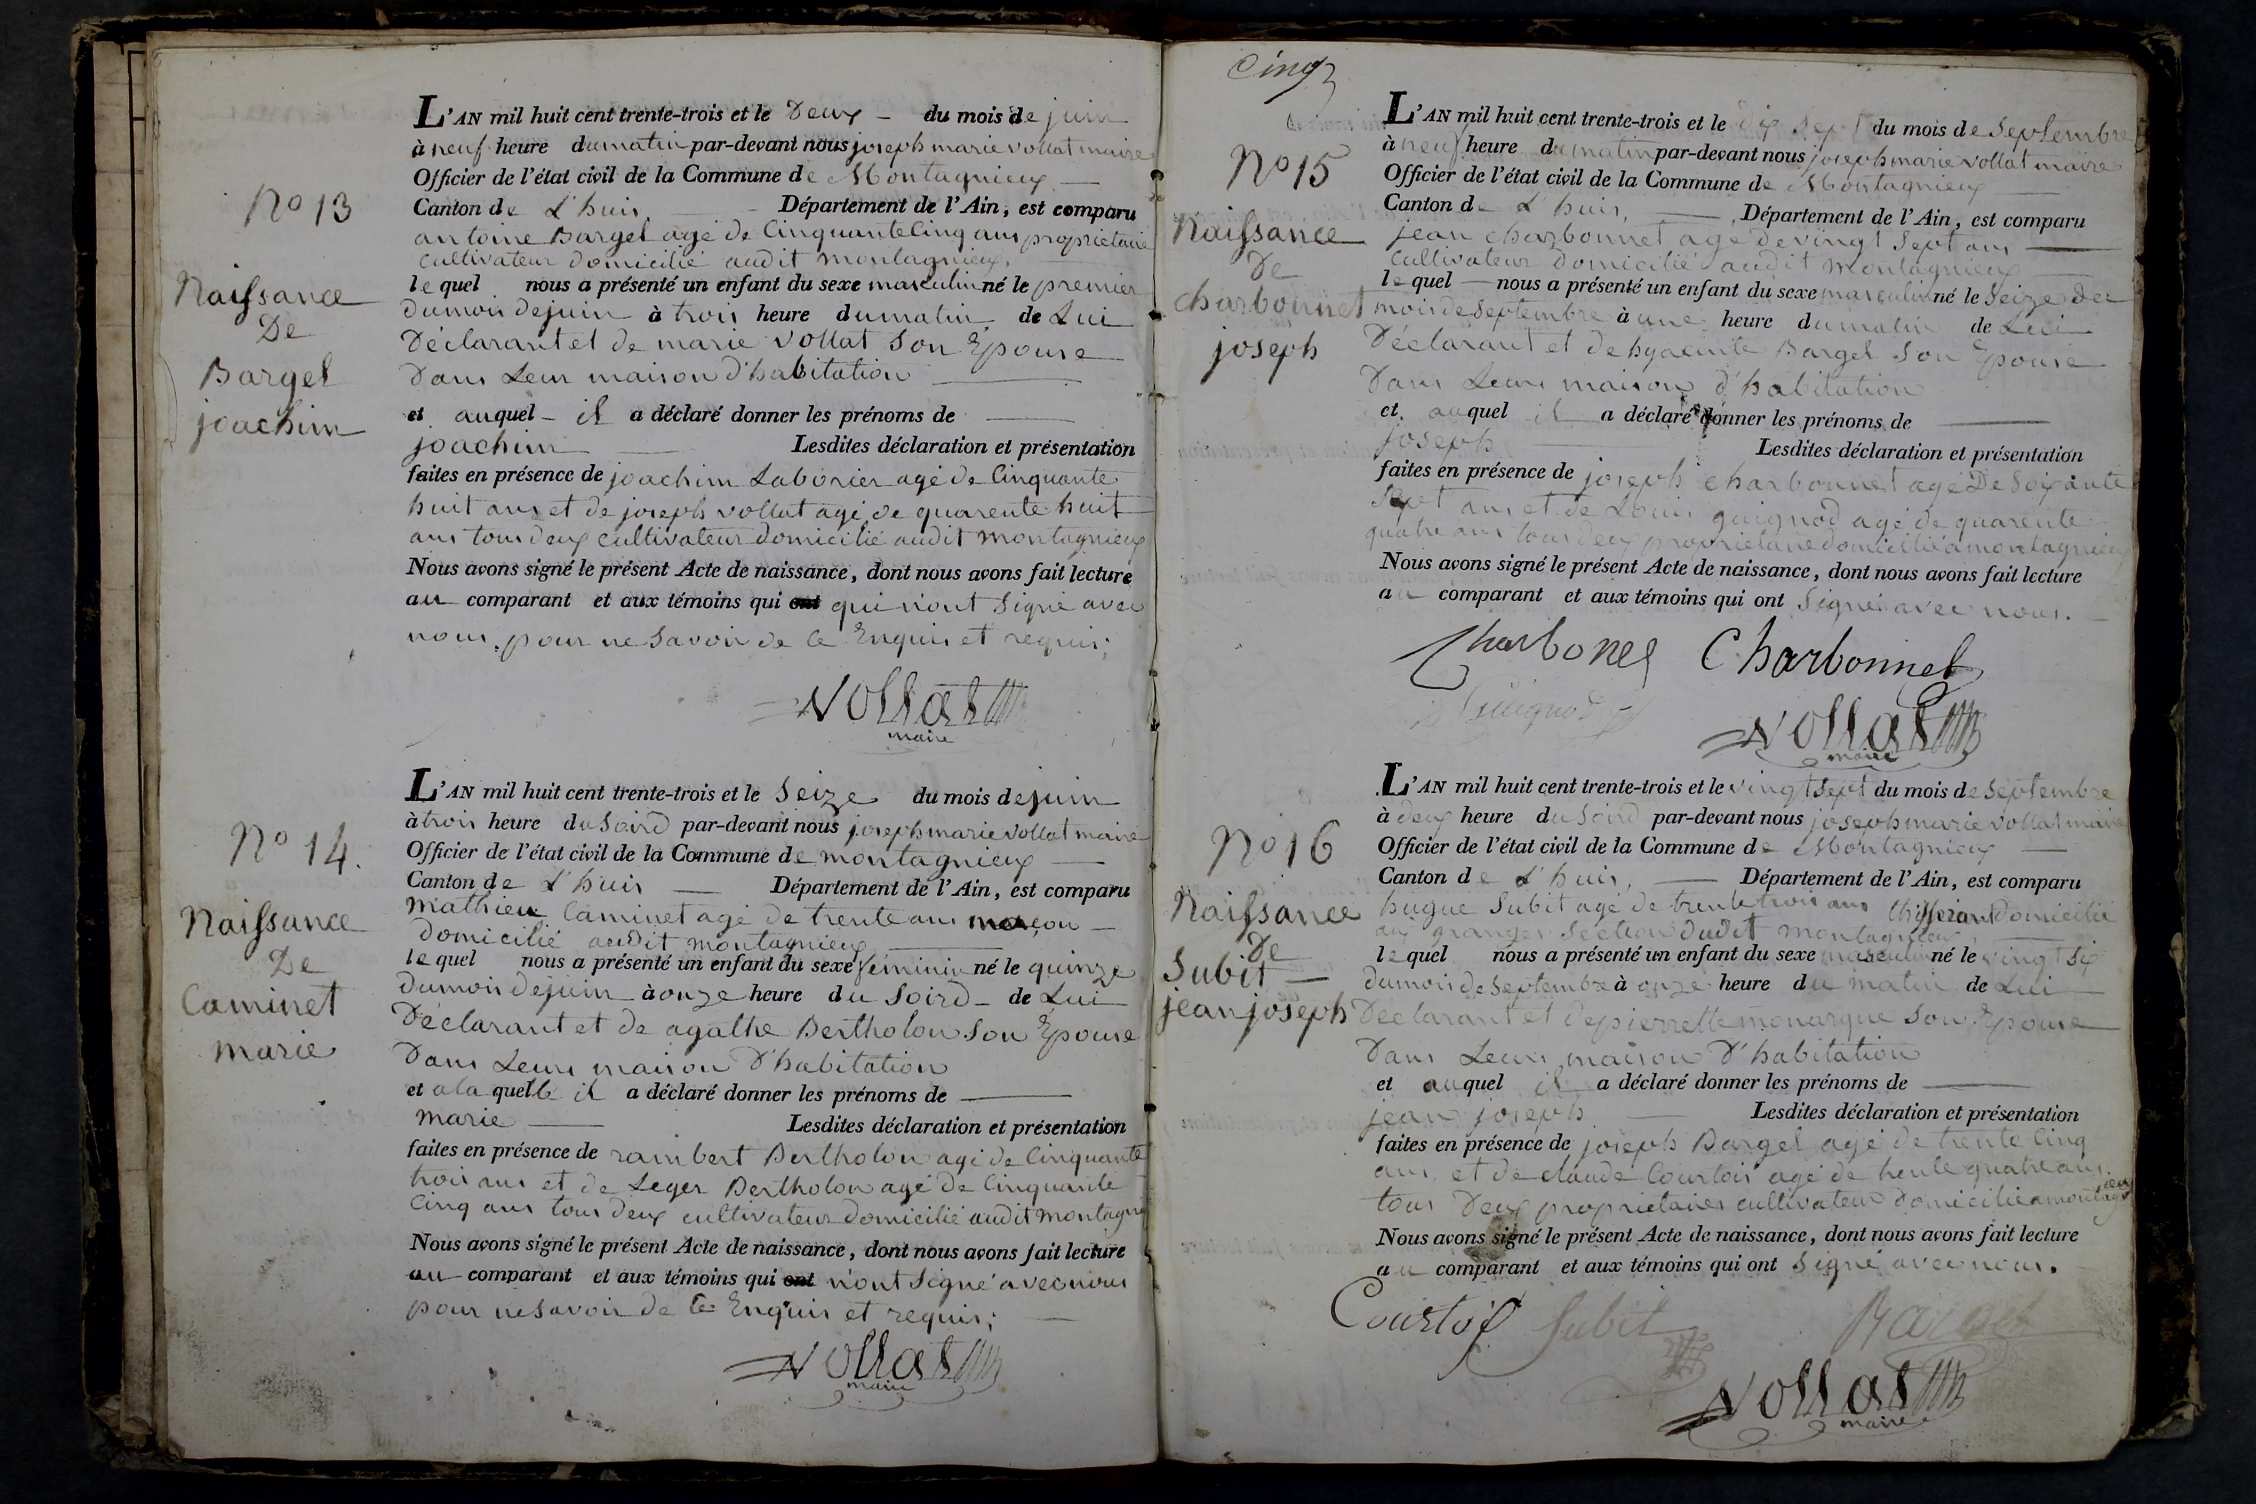 N° 13
Naissance
De
Bargel
joachim
L'AN mil huit cent trente-trois et le Deux du mois de juin
à neuf heure du matin par-devant nous joseph marie vollat maire
Officier de l'état civil de la Commune de Montagnieux
Canton de L'huis, Département de l'Ain, est comparu
antoine Bargel agé de Cinquante Cinq ans proprietaire
cultivateur domicilié audit montagnieux,
le quel nous a présenté un enfant du sexe masculin né le premier
du mois de juin à trois heure du matin de Lui
Déclarant et de marie vollat Son Epouse
Dans Leur maison d'habitation
et auquel il a déclaré donner les prénoms de
joachim Lesdites déclaration et présentation
faites en présence de joachim Laborier agé de Cinquante
huit ans et de joseph vollat agé de quarente huit
ans tous deux cultivateur domicilié audit montagnieux
Nous avons signé le présent Acte de naissance, dont nous avons fait lecture
au comparant et aux témoins qui ont qui n'ont Signé avec
nous, pour ne Savoir de Ce Enquis et requis;
Vollat
maire
N° 14.
Naissance
De
Caminet
marie
L'AN mil huit cent trente-trois et le Seize du mois de juin
à trois heure du Soird par-devant nous joseph marie vollat maire
Officier de l'état civil de la Commune de montagnieux
Canton de L'huis Département de l'Ain, est comparu
Mathieu Caminet agé de trente ans maçon
domicilié audit montagnieux
le quel nous a présenté un enfant du sexe féminin né le quinze
du mois de juin à onze heure du Soird de Lui
Déclarant et de agathe Bertholon Son Epouse
Dans Leurs maison D'habitation
et a la quelle il a déclaré donner les prénoms de
marie Lesdites déclaration et présentation
faites en présence de rambert Bertholon agé de Cinquante
trois ans et de Leger Bertholon agé de Cinquante
Cinq ans tous deux cultivateur domicilié audit montagni
Nous avons signé le présent Acte de naissance, dont nous avons fait lecture
au comparant et aux témoins qui ont n'ont Signé avec nous
pour ne Savoir de Ce Enquis et requis;
Vollat
maire
Cinq
N° 15
Naissance
De
Charbonnet
joseph
L'AN mil huit cent trente-trois et le dix sept du mois de Septembre
à neuf heure du matin par-devant nous joseph marie vollat maire
Officier de l'état civil de la Commune de Montagnieux
Canton de L'huis, Département de l'Ain, est comparu
jean charbonnet agé de vingt Sept ans
Cultivateur domicilié audit montagnieux
le quel nous a présenté un enfant du sexe masculin né le Seize du
mois de Septembre à une heure du matin de Lui
Déclarant et de hyacinte Bargel Son Epouse
Dans Leurs maison d'habitation
et auquel il a déclaré donner les prénoms de
joseph Lesdites déclaration et présentation
faites en présence de joseph charbonnet agé De Soixante
Sept ans et de Louis guignod agé de quarente
quatre ans tous deux proprietaire domicilié a montagnieux
Nous avons signé le présent Acte de naissance, dont nous avons fait lecture
au comparant et aux témoins qui ont Signés avec nous.
Charbonel Charbonnet
Guignod
Vollat
maire
N° 16
Naissance
De
Subit
jean joseph
L'AN mil huit cent trente-trois et le vingt Sept du mois de Septembre
à deux heure du Soird par-devant nous joseph marie vollat maire
Officier de l'état civil de la Commune de Montagnieux
Canton de L'huis, Département de l'Ain, est comparu
hugue Subit agé de trente trois ans thisserant domicilié
aux granges Section dudit montagnieux,
le quel nous a présenté un enfant du sexe masculin né le vingt Six
du mois de Septembre à onze heure du matin de Lui
Déclarant et de pierrette monarque Son Epouse
Dans Leurs maison D'habitation
et auquel il a déclaré donner les prénoms de
jean joseph Lesdites déclaration et présentation
faites en présence de joseph Bargel agé de trente Cinq
ans et de claude Courtois agé de trente quatre ans.
tous Deux proprietaires cultivateur domicilié a montagnieux
Nous avons signé le présent Acte de naissance, dont nous avons fait lecture
au comparant et aux témoins qui ont Signé avec nous.
Courtois Subit Bargel
Vollat
maire